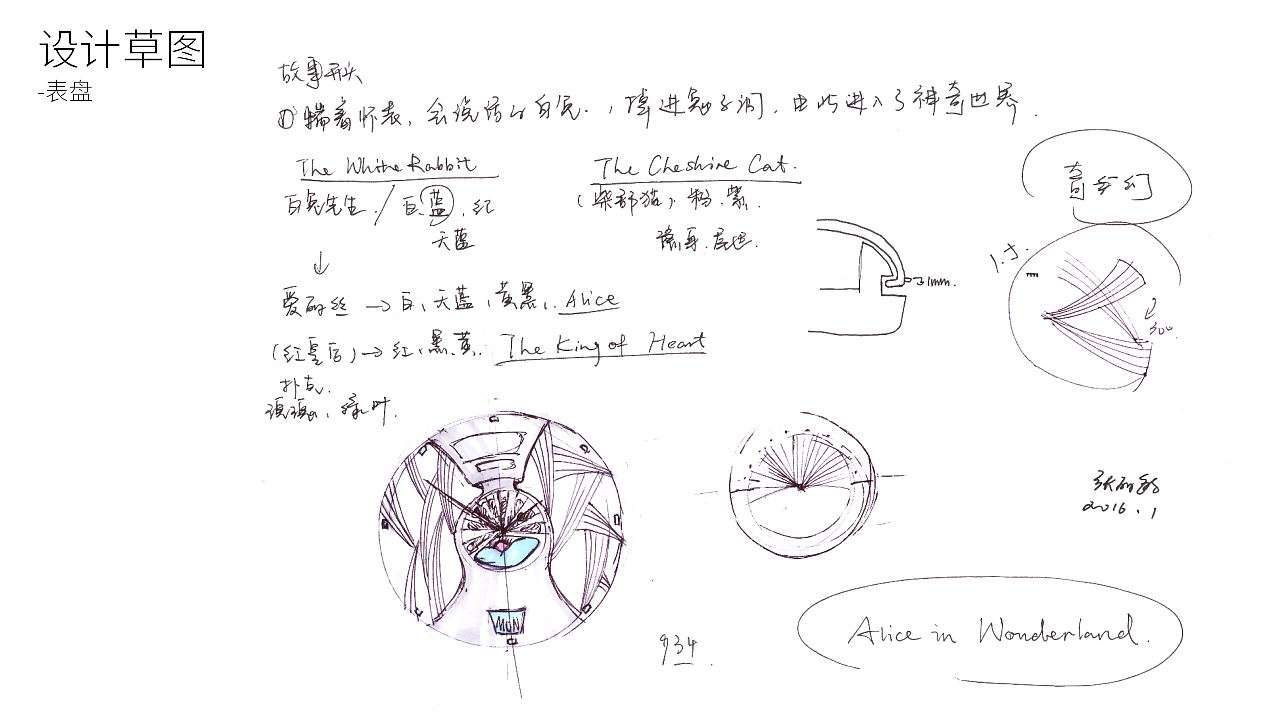 设计草图
-表盘
故事开头
① 揣着怀表，会说话的白兔，掉进兔子洞，由此进入了神奇世界.
The White Rabbit
白兔先生. / 白、蓝、红
天蓝
The Cheshire Cat.
(柴郡猫) 粉、紫.
隐身.
奇幻
1mm.
爱丽丝 → 白、天蓝、黄黑、Alice
(红皇后) → 红、黑、黄. The King of Heart
扑克.
绿叶.
300
MON
934
2016.1
Alice in Wonderland.